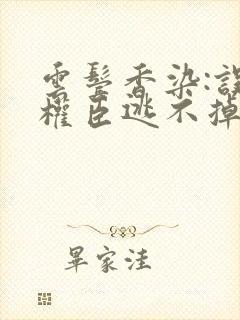 雲鬢香染:誤
權臣逃不掉
畢家洼